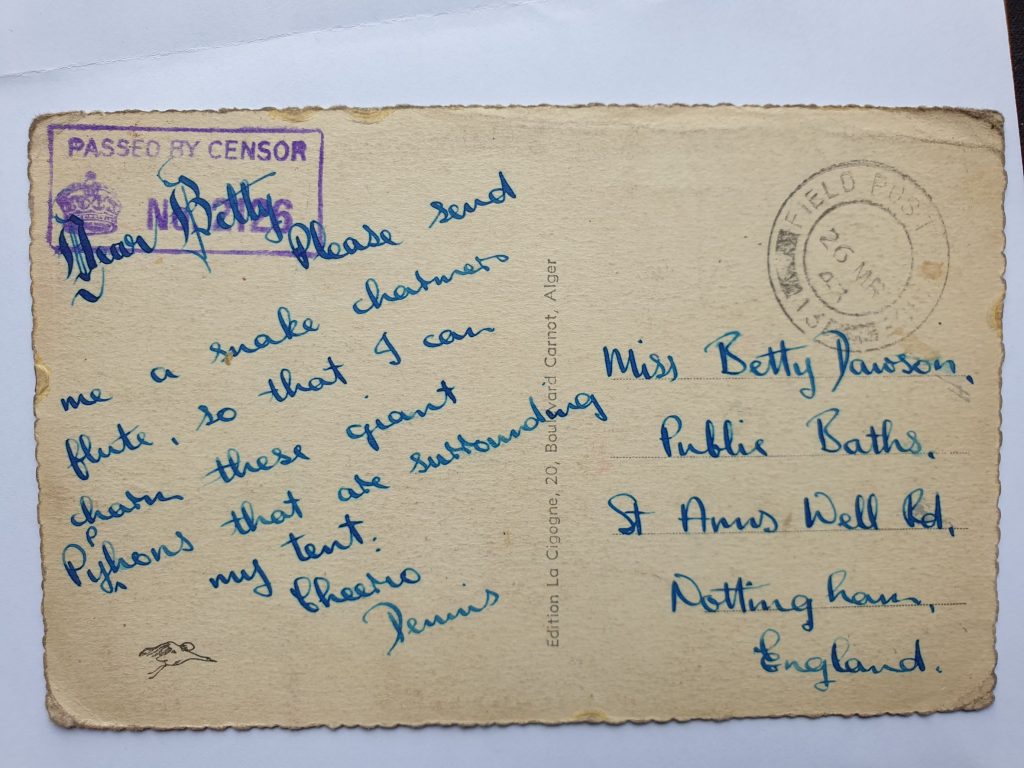 PASSED BY CENSOR
Dear Betty
Please send
me a snake charmers
flute, so that I can
charm these giant
Pyphons that are surrounding
my tent.
Cheerio
Dennis
Edition La Cigogne, 20, Boulevard Carnot, Alger
FIELD POST
26 MR
43
Miss Betty Dawson,
Public Baths.
St Anns Well Rd,
Nottingham,
England.